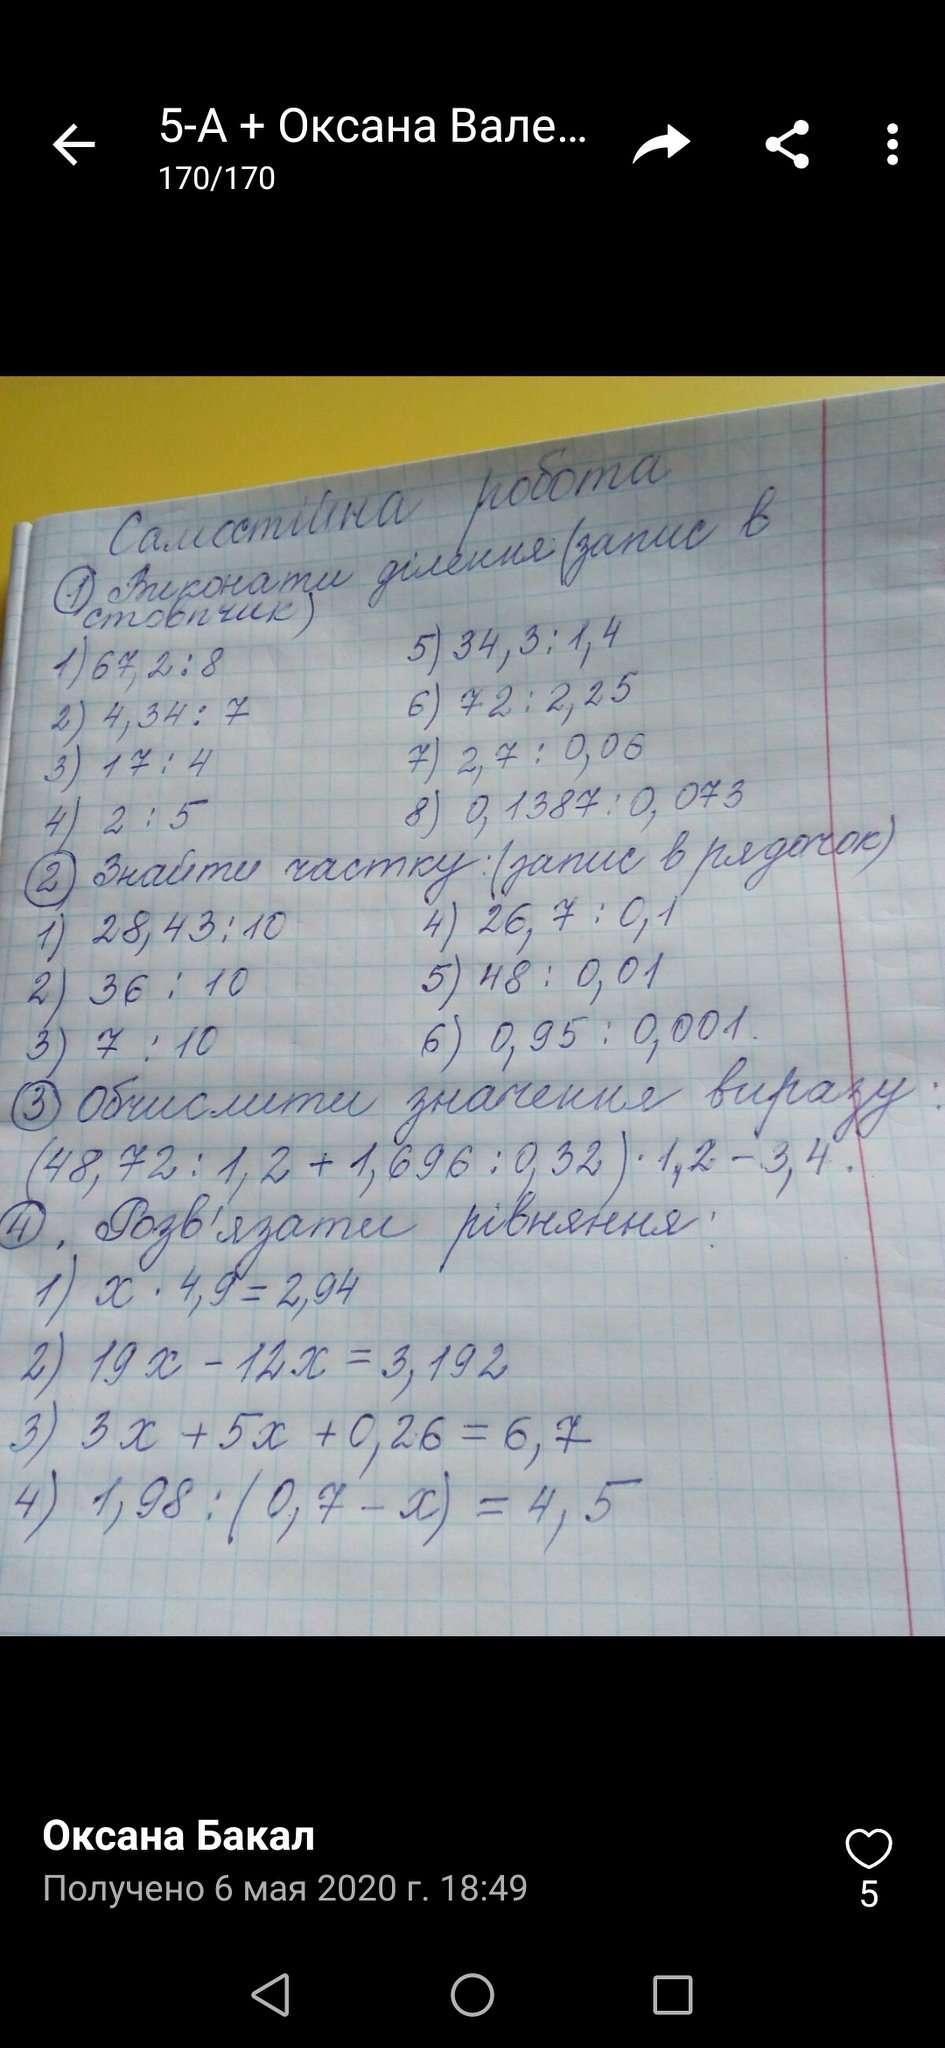 5-А + Оксана Вале...
170/170
Самостійна робота
① Виконати ділення (запис в
стовпчик)
1) 67,2 : 8
2) 4,34 : 7
3) 17 : 4
4) 2 : 5
5) 34,3 : 1,4
6) 72 : 2,25
7) 2,7 : 0,06
8) 0,1387 : 0,073
② Знайти частку: (запис в рядочок)
1) 28,43 : 10
2) 36 : 10
3) 7 : 10
4) 26,7 : 0,1
5) 48 : 0,01
6) 0,95 : 0,001.
③ Обчислити значення виразу:
(48,72 : 1,2 + 1,696 : 0,32) · 1,2 - 3,4.
④. Розв'язати рівняння:
1) x · 4,9 = 2,94
2) 19x - 12x = 3,192
3) 3x + 5x + 0,26 = 6,7
4) 1,98 : (0,7 - x) = 4,5
Оксана Бакал
Получено 6 мая 2020 г. 18:49
5